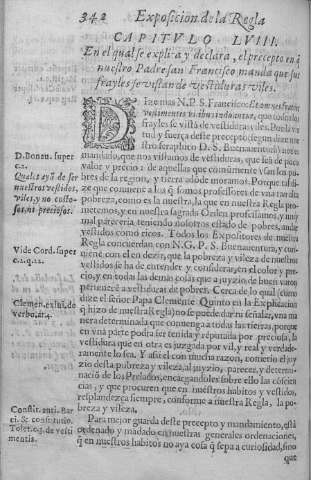 342 Exposicion de la Regla
CAPITVLO LVIII.
En el qual se explica y declara, el precepto en q̃
nuestro Padre san Francisco manda que sus
frayles se vistan de vestiduras viles.
Dize mas N. P. S. Francisco: Et omnes fratres
vestimentis vilibus induantur, que todos los
frayles se vistã de vestiduras viles. Por la vir
tud y fuerça deste precepto; dize
seraphico D. S. Buenauentura
mandado, que nos vistamos de vestiduras, que sea de poco
valor, y precio: a de aquellas que comũmente vsan los po
bres de la region, y tierra adõde moramos. Porque assi di
ze que conuiene a los q̃ somos professores de vna tan alta
pobreza, como es la nuestra, la que en nuestra Regla pro
metemos, y en nuestra sagrada Orden professamos, y muy
mal pareceria, teniendo nosotros estado de pobres, andar
vestidos como ricos. Todos los Expositores de nuestra
Regla concuerdan con N. G. P. S. Buenauentura, y con
uienẽ con el en dezir, que la pobreza y vileza de nuestros
vestidos se ha de entender, y considerar, en el color y pre-
cio, y en todas las demas cosas que a juyzio de buen varon
perteneciẽ a vestiduras de pobres. Cerca de lo qual (como
dize el señor Papa Clemente Quinto en la Explicacion
q̃ hizo de nuestra Regla) no se puede dar ni señalar, vna ma
nera determinada que conuenga a todas las tierras, porque
en vna parte podra ser tenida y reputada por preciosa, la
vestidura que en otra es juzgada por vil, y real y verdade-
ramente lo sea. Y assi el con mucha razon, cometio el juy
zio desta pobreza y vileza, al juyzio, parecer, y determi-
nació de los Prelados, encargandoles sobre ello las cõscien
cias, y que procuren que en nuestros habitos y vestidos,
resplandezca siempre, conforme a nuestra Regla, la po-
breza y vileza.
Para mejor guarda deste precepto y mandamiento, està
ordenado y mãdado en nuestras generales ordenaciones,
q̃ en nuestros habitos no aya cosa q̃ sepa a curiosidad, sino
que
D. Bonau. super
c. 2.
Quales ayã de ser
nuestros vestidos,
viles, y no costo-
sos, ni preciosos.
Vide Cord. super
c. 2. q. 12.
Clemen. exiui. de
verbo. ar. 4.
Constit. anti. Bar
ci. & constitutio.
Tolet. cap. de vesti
mentis.